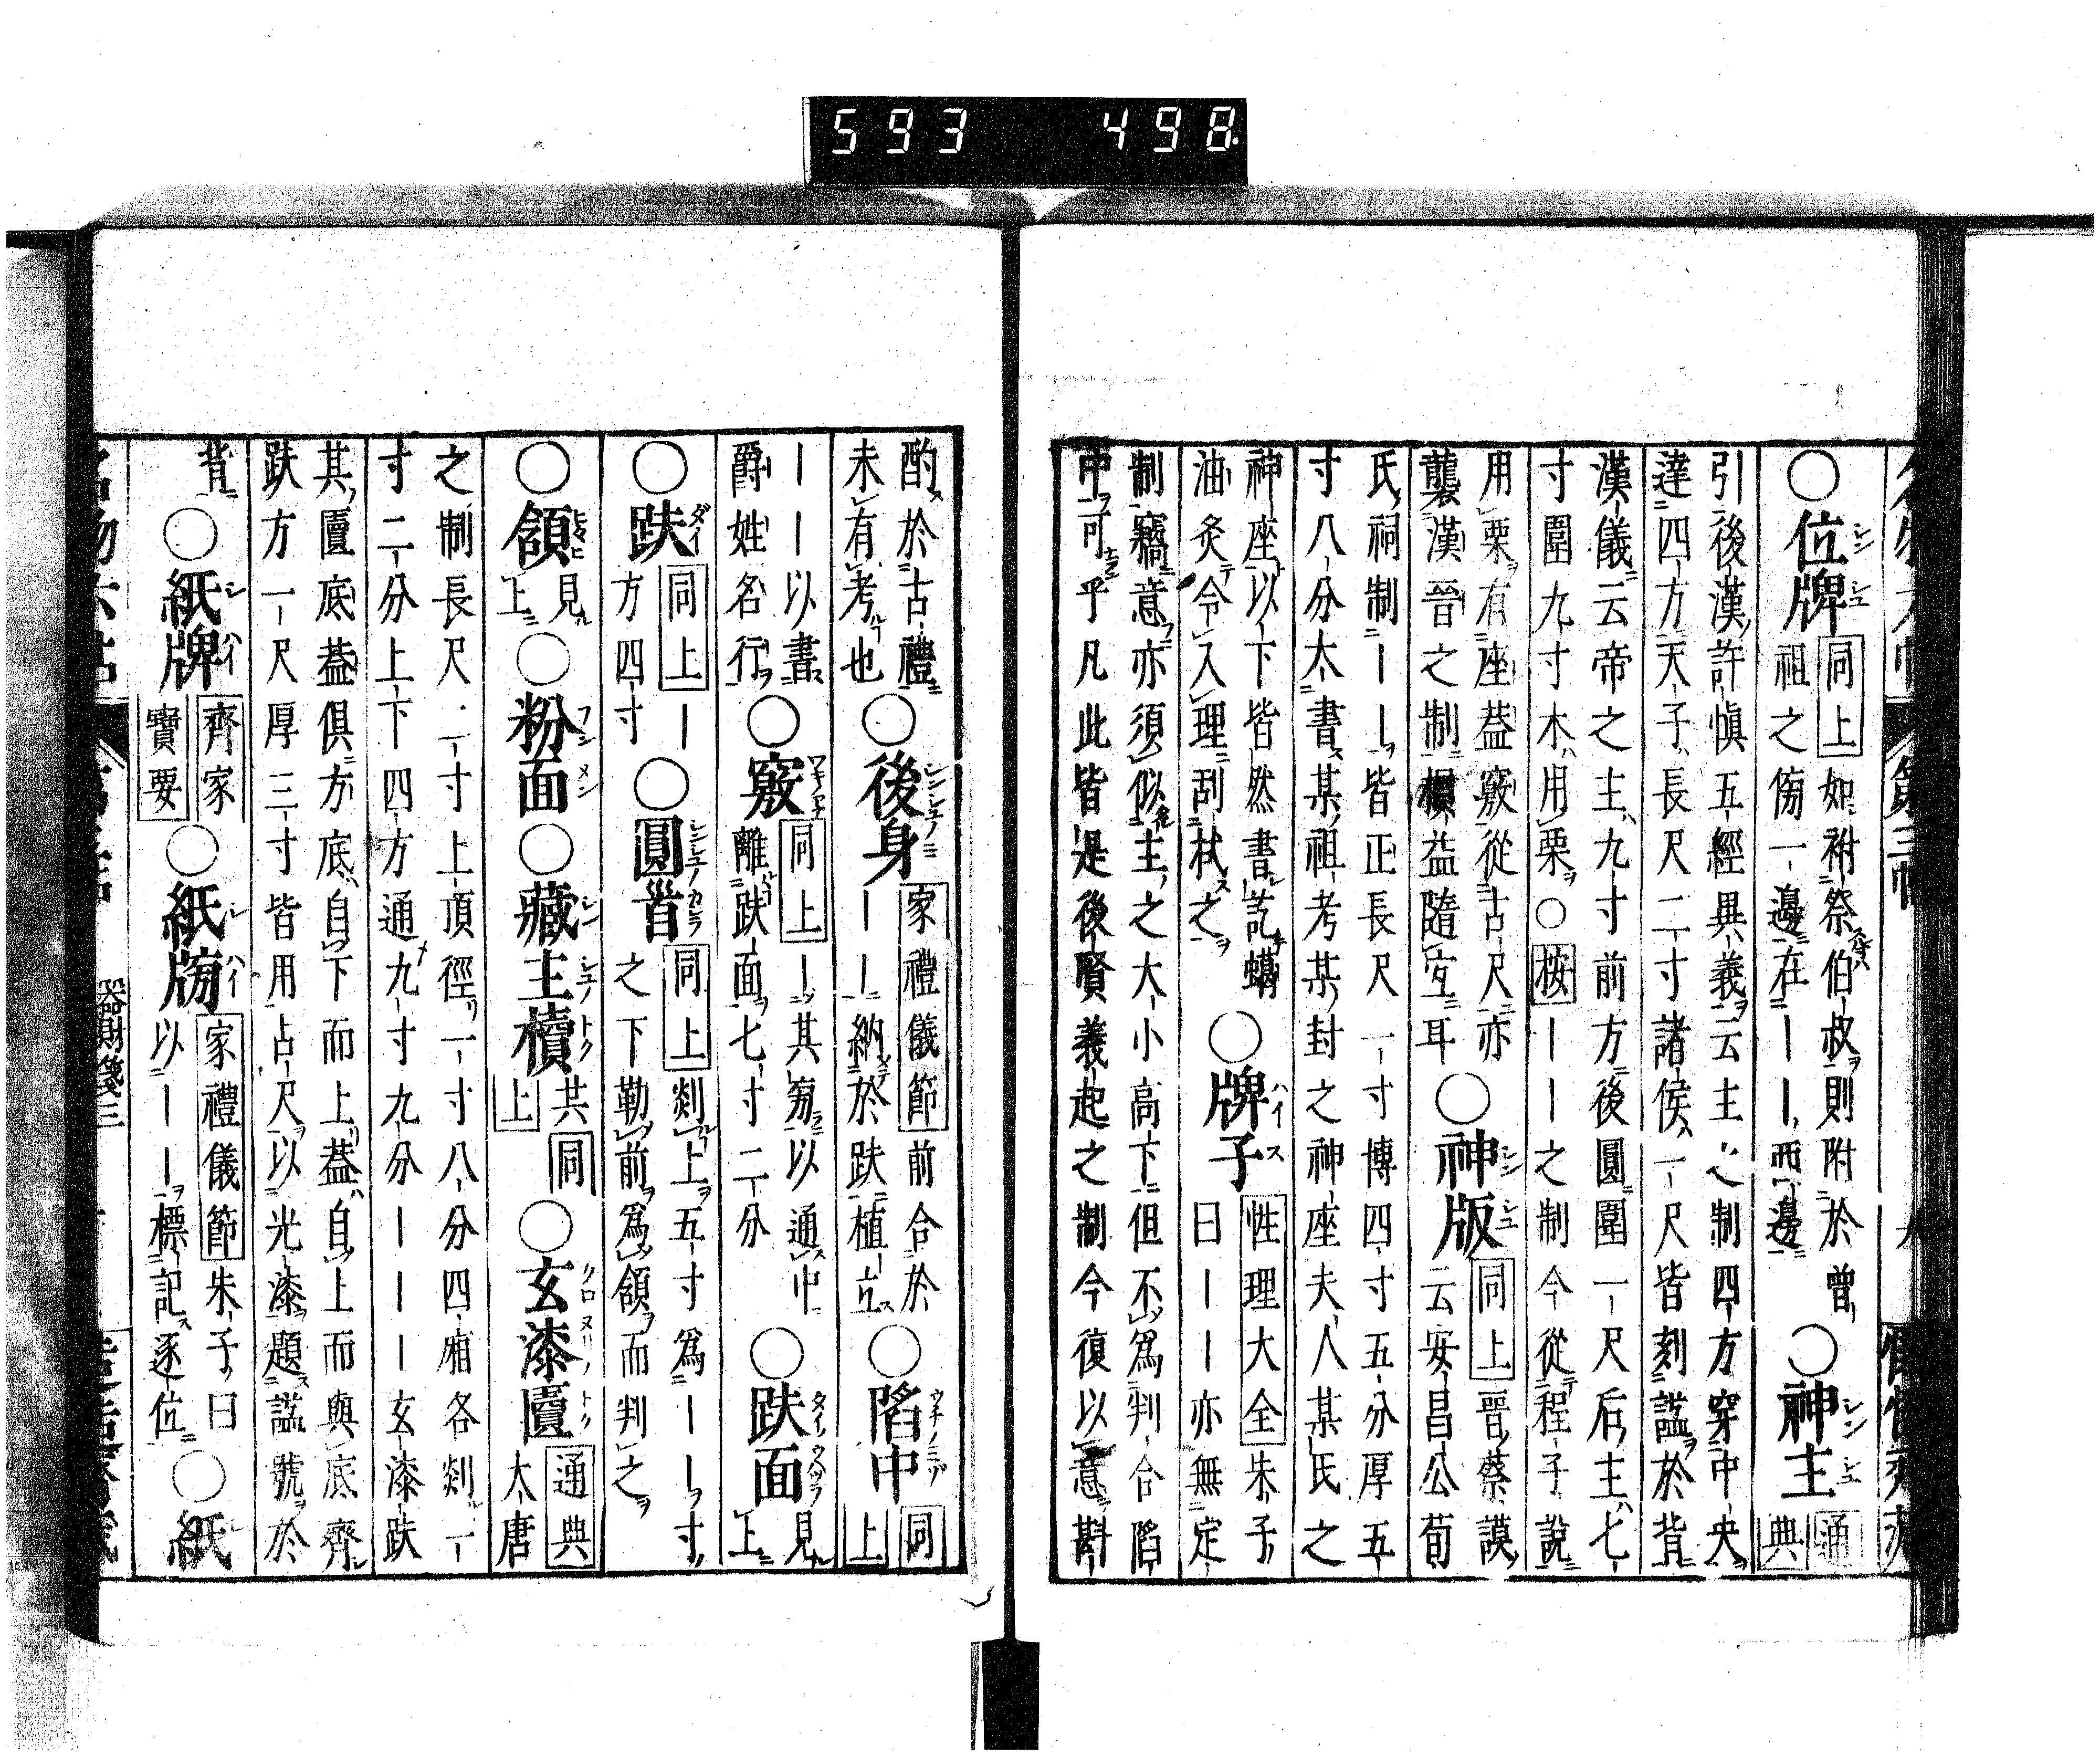 593 498
○位牌 同上 如祔祭伯叔則附於曾
祖之傍一邊在――西邊
○神主 通典
引後漢許愼五經異義云主之制四方穿中央
達四方天子長尺二寸諸侯一尺皆刻謚於背
漢儀云帝之主九寸前方後圓圍一尺后主七
寸圍九寸木用栗○按――之制今從程子說
用栗有座蓋竅從古尺亦
襲漢晉之制櫝益隨宜耳
○神版 同上 晉蔡謨
云安昌公荀
氏祠制――皆正長尺一寸博四寸五分厚五
寸八分大書某祖考某封之神座夫人某氏之
神座以下皆然書訖蠟
油炙令入理刮拭之
○牌子 性理大全 朱子
曰――亦無定
制竊意亦須似主之大小高下但不爲判合陷
中可乎凡此皆是後賢義起之制今復以意斟
酌於古禮
未有考也
○後身 家禮儀節 前合於
――納於趺植立
○陷中 同上
――以書
爵姓名行
○竅 同上 ―其旁以通中
離趺面七寸二分
○趺面 見上
○趺 同上 ―
方四寸
○圓首 同上 剡上五寸爲――寸
之下勒前爲頷而判之
○頷 見上
○粉面
○藏主櫝 共同上
○玄漆匵 通典 大唐
之制長尺二寸上頂徑一寸八分四廂各剡一
寸二分上下四方通九寸九分―――玄漆趺
其匵底蓋俱方底自下而上蓋自上而與底齊
趺方一尺厚三寸皆用古尺以光漆題謚號於
背
○紙牌 齊家寶要
○紙牓 家禮儀節 朱子曰
以――標記逐位
○紙
器財箋三